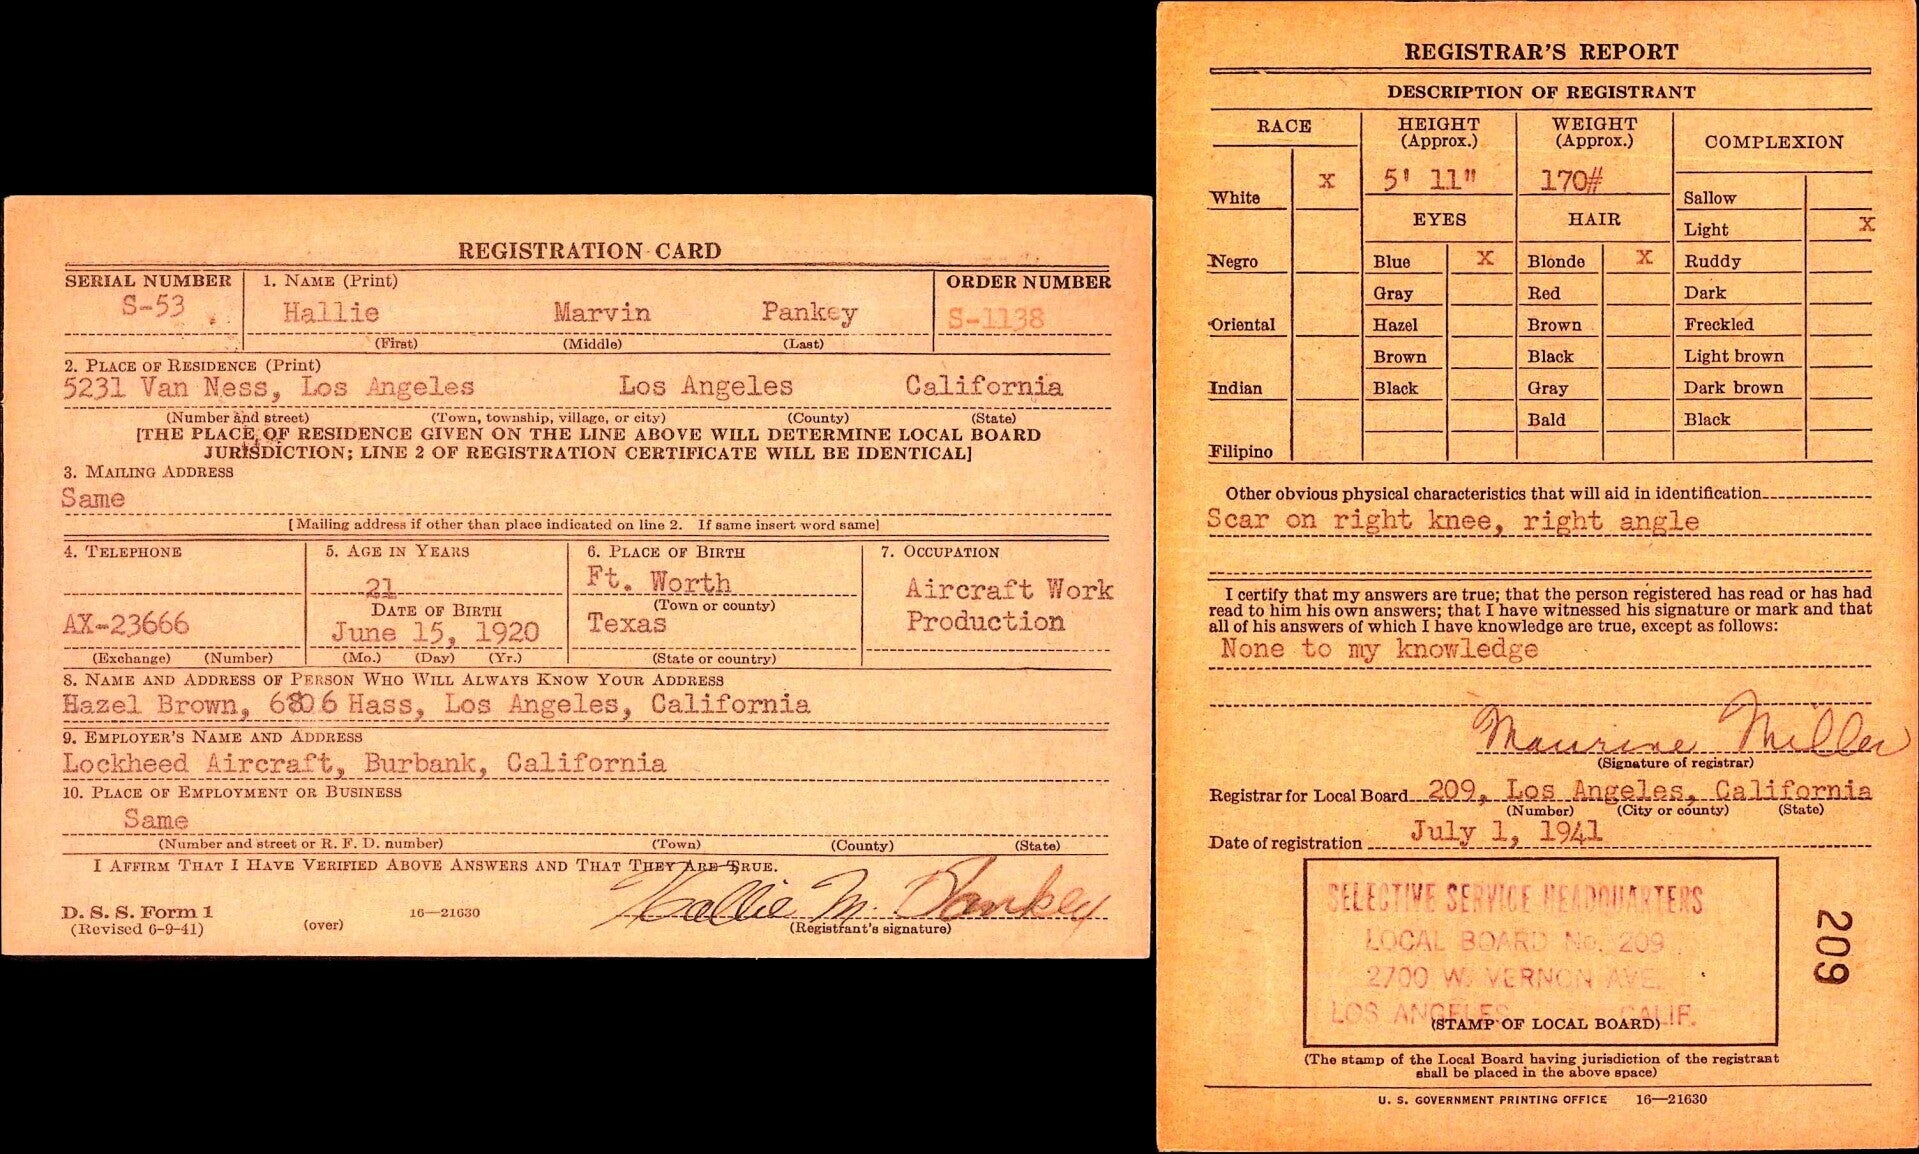 REGISTRATION CARD
SERIAL NUMBER
S-53
1. NAME (Print)
Hallie Marvin Pankey
(First) (Middle) (Last)
ORDER NUMBER
S-1138
2. PLACE OF RESIDENCE (Print)
5231 Van Ness, Los Angeles Los Angeles California
(Number and street) (Town, township, village, or city) (County) (State)
[THE PLACE OF RESIDENCE GIVEN ON THE LINE ABOVE WILL DETERMINE LOCAL BOARD
JURISDICTION; LINE 2 OF REGISTRATION CERTIFICATE WILL BE IDENTICAL]
3. MAILING ADDRESS
Same
[Mailing address if other than place indicated on line 2. If same insert word same]
4. TELEPHONE
AX-23666
(Exchange) (Number)
5. AGE IN YEARS
21
DATE OF BIRTH
June 15, 1920
(Mo.) (Day) (Yr.)
6. PLACE OF BIRTH
Ft. Worth
(Town or county)
Texas
(State or country)
7. OCCUPATION
Aircraft Work
Production
8. NAME AND ADDRESS OF PERSON WHO WILL ALWAYS KNOW YOUR ADDRESS
Hazel Brown, 6806 Hass, Los Angeles, California
9. EMPLOYER'S NAME AND ADDRESS
Lockheed Aircraft, Burbank, California
10. PLACE OF EMPLOYMENT OR BUSINESS
Same
(Number and street or R. F. D. number) (Town) (County) (State)
I AFFIRM THAT I HAVE VERIFIED ABOVE ANSWERS AND THAT THEY ARE TRUE.
Hallie M. Pankey
(Registrant's signature)
D. S. S. Form 1
(Revised 6-9-41)
(over)
16—21630
REGISTRAR'S REPORT
DESCRIPTION OF REGISTRANT
RACE
White X
Negro
Oriental
Indian
Filipino
HEIGHT
(Approx.)
5' 11"
WEIGHT
(Approx.)
170#
EYES
Blue X
Gray
Hazel
Brown
Black
HAIR
Blonde X
Red
Brown
Black
Gray
Bald
COMPLEXION
Sallow
Light X
Ruddy
Dark
Freckled
Light brown
Dark brown
Black
Other obvious physical characteristics that will aid in identification
Scar on right knee, right angle
I certify that my answers are true; that the person registered has read or has had
read to him his own answers; that I have witnessed his signature or mark and that
all of his answers of which I have knowledge are true, except as follows:
None to my knowledge
Maurine Miller
(Signature of registrar)
Registrar for Local Board 209, Los Angeles, California
(Number) (City or county) (State)
Date of registration July 1, 1941
SELECTIVE SERVICE HEADQUARTERS
LOCAL BOARD No. 209
2700 W. VERNON AVE.
LOS ANGELES CALIF.
(STAMP OF LOCAL BOARD)
209
(The stamp of the Local Board having jurisdiction of the registrant
shall be placed in the above space)
U. S. GOVERNMENT PRINTING OFFICE 16—21630